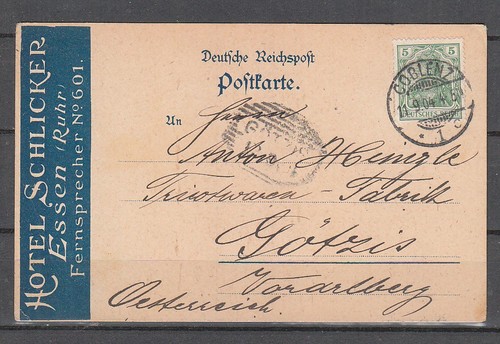 HOTEL SCHLICKER
Essen (Ruhr)
Fernsprecher No 601.
Deutsche Reichspost
Postkarte.
5 5
DEUTSCHES REICH
COBLENZ
11.9.04
* 1 c
An Herrn
Anton Heinzle
Tricotwaren-Fabrik
Götzis
Vorarlberg
Oesterreich.